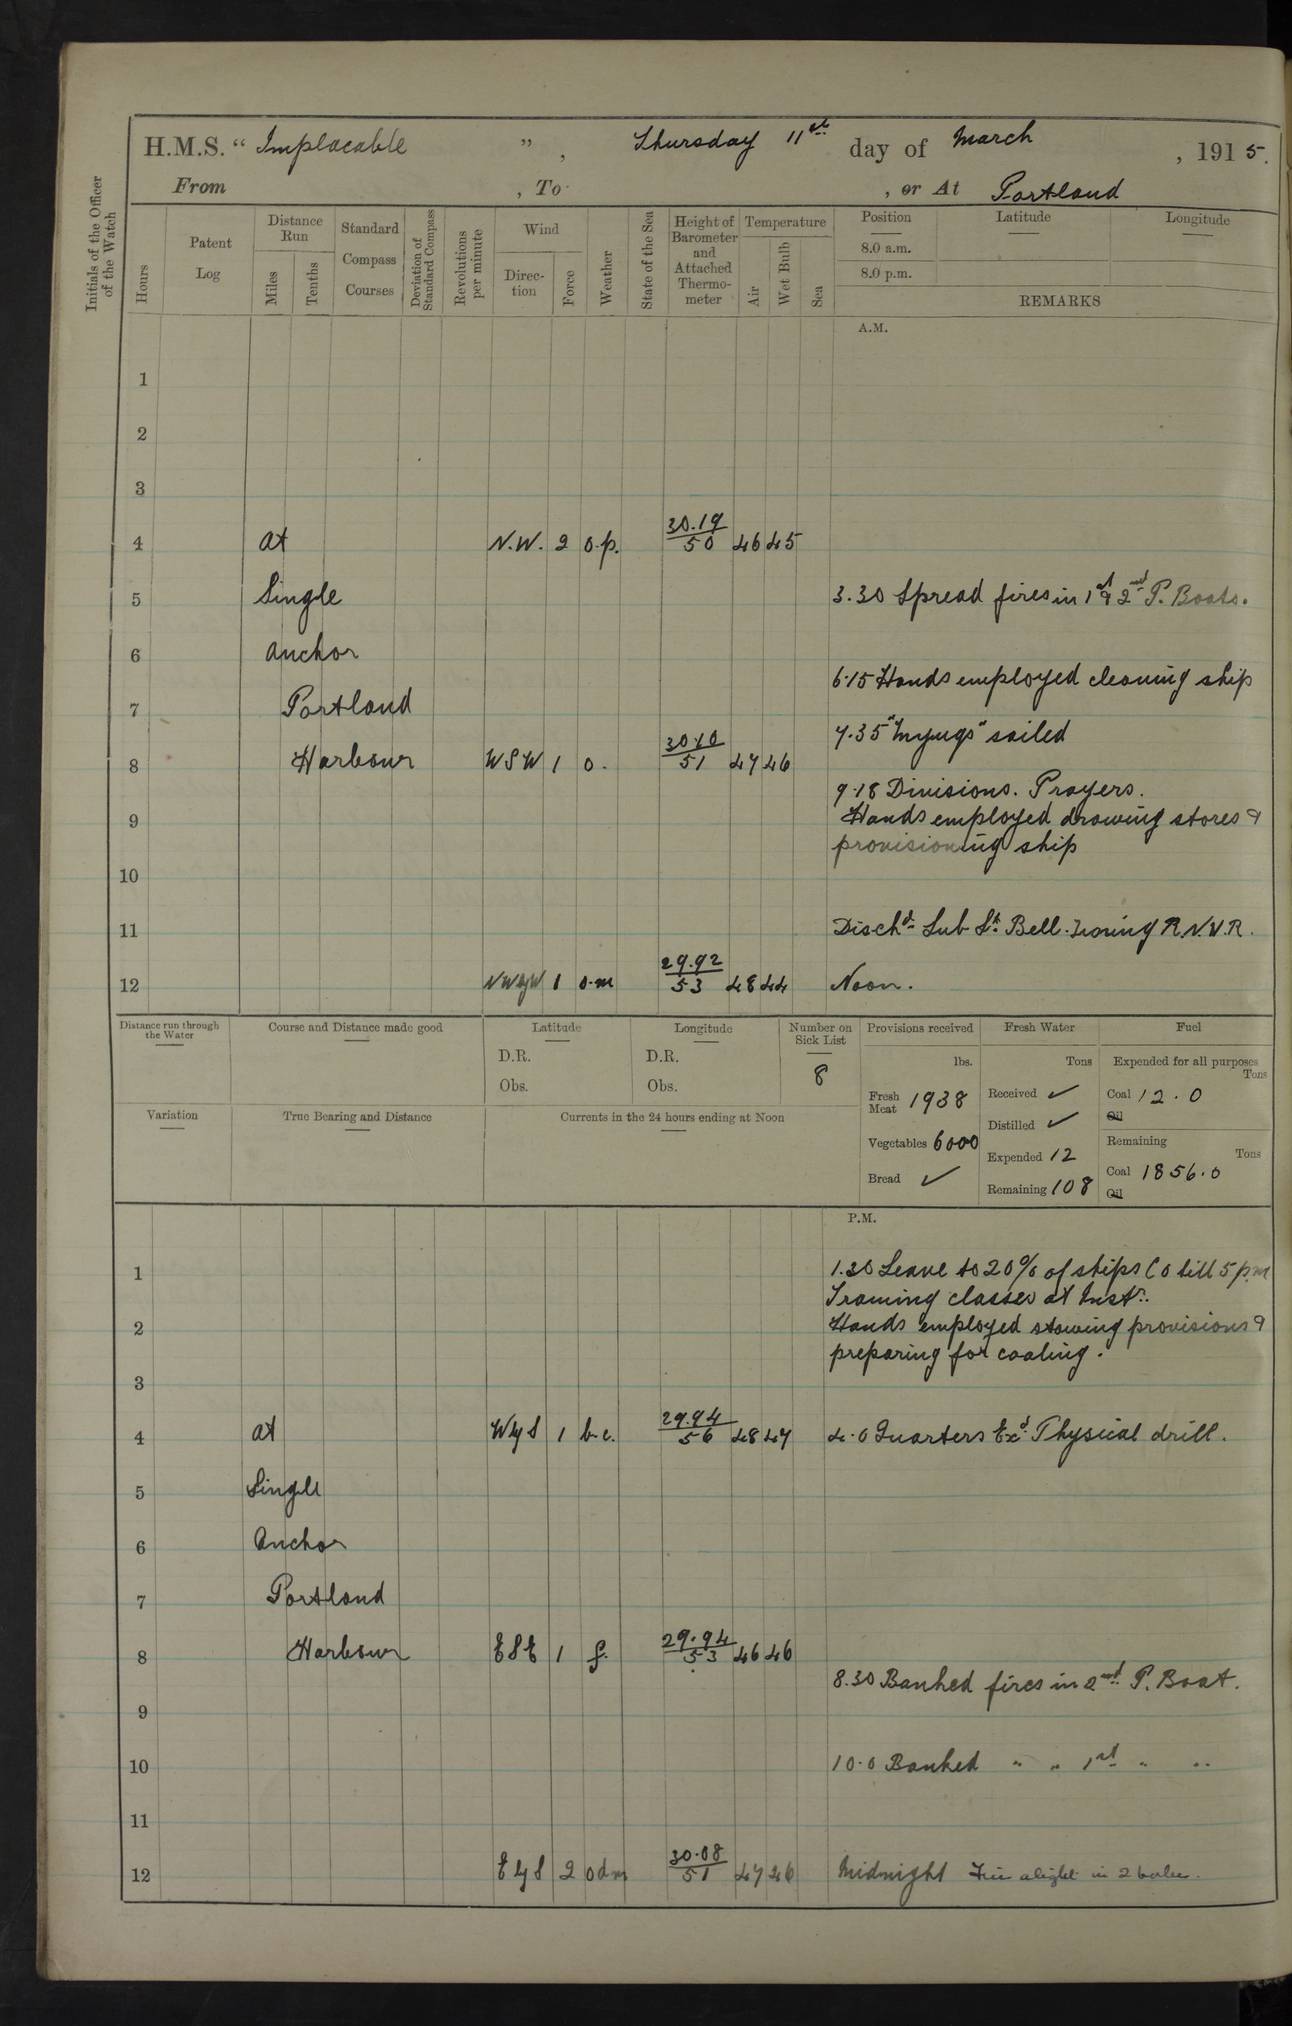 H.M.S. " Implacable ", Thursday 11th day of March, 1915.
From , To , or At Portland
Initials of the Officer of the Watch
Hours
Patent Log
Distance Run
Miles
Tenths
Standard Compass Courses
Deviation of Standard Compass
Revolutions per minute
Wind
Direction
Force
Weather
State of the Sea
Height of Barometer and Attached Thermometer
Temperature
Air
Wet Bulb
Sea
Position Latitude Longitude
8.0 a.m.
8.0 p.m.
REMARKS
A.M.
1
2
3
4 At N.W. 2 o.p. 30.19 50 46 45
5 Single 3.30 Spread fires in 1st & 2nd P. Boats.
6 Anchor
6.15 Hands employed cleaning ship
7 Portland
7.35 sailed
8 Harbour WSW 1 o. 51 47 46
9.18 Divisions. Prayers.
9 Hands employed drawing stores &
provisioning ship
10
11 Disch'd Sub Lt Bell-Irving R.N.V.R.
12 NWbyW 1 o.m 29.92 53 48 44 Noon.
Distance run through the Water
Course and Distance made good
Latitude
D.R.
Obs.
Longitude
D.R.
Obs.
Number on Sick List
8
Provisions received
lbs.
Fresh Meat 1938
Vegetables 6000
Bread ✓
Fresh Water
Tons
Received ✓
Distilled ✓
Expended 12
Remaining 108
Fuel
Expended for all purposes
Tons
Coal 12.0
Oil
Remaining
Tons
Coal 1856.0
Oil
Variation
True Bearing and Distance
Currents in the 24 hours ending at Noon
P.M.
1 1.30 Leave to 20% of ships Co till 5 p.m
Training classes at Instn.
2 Hands employed stowing provisions &
preparing for coaling.
3
4 At W by S 1 b.c. 29.94 56 48 47 4.0 Quarters Exd Physical drill.
5 Single
6 Anchor
7 Portland
8 Harbour ESE 1 f. 29.94 53 46 46
8.30 Banked fires in 2nd P. Boat.
9
10 10.0 Banked " " 1st " "
11
12 E by S 2 odm 30.08 51 47 46 Midnight Fires alight in 2 boilers.